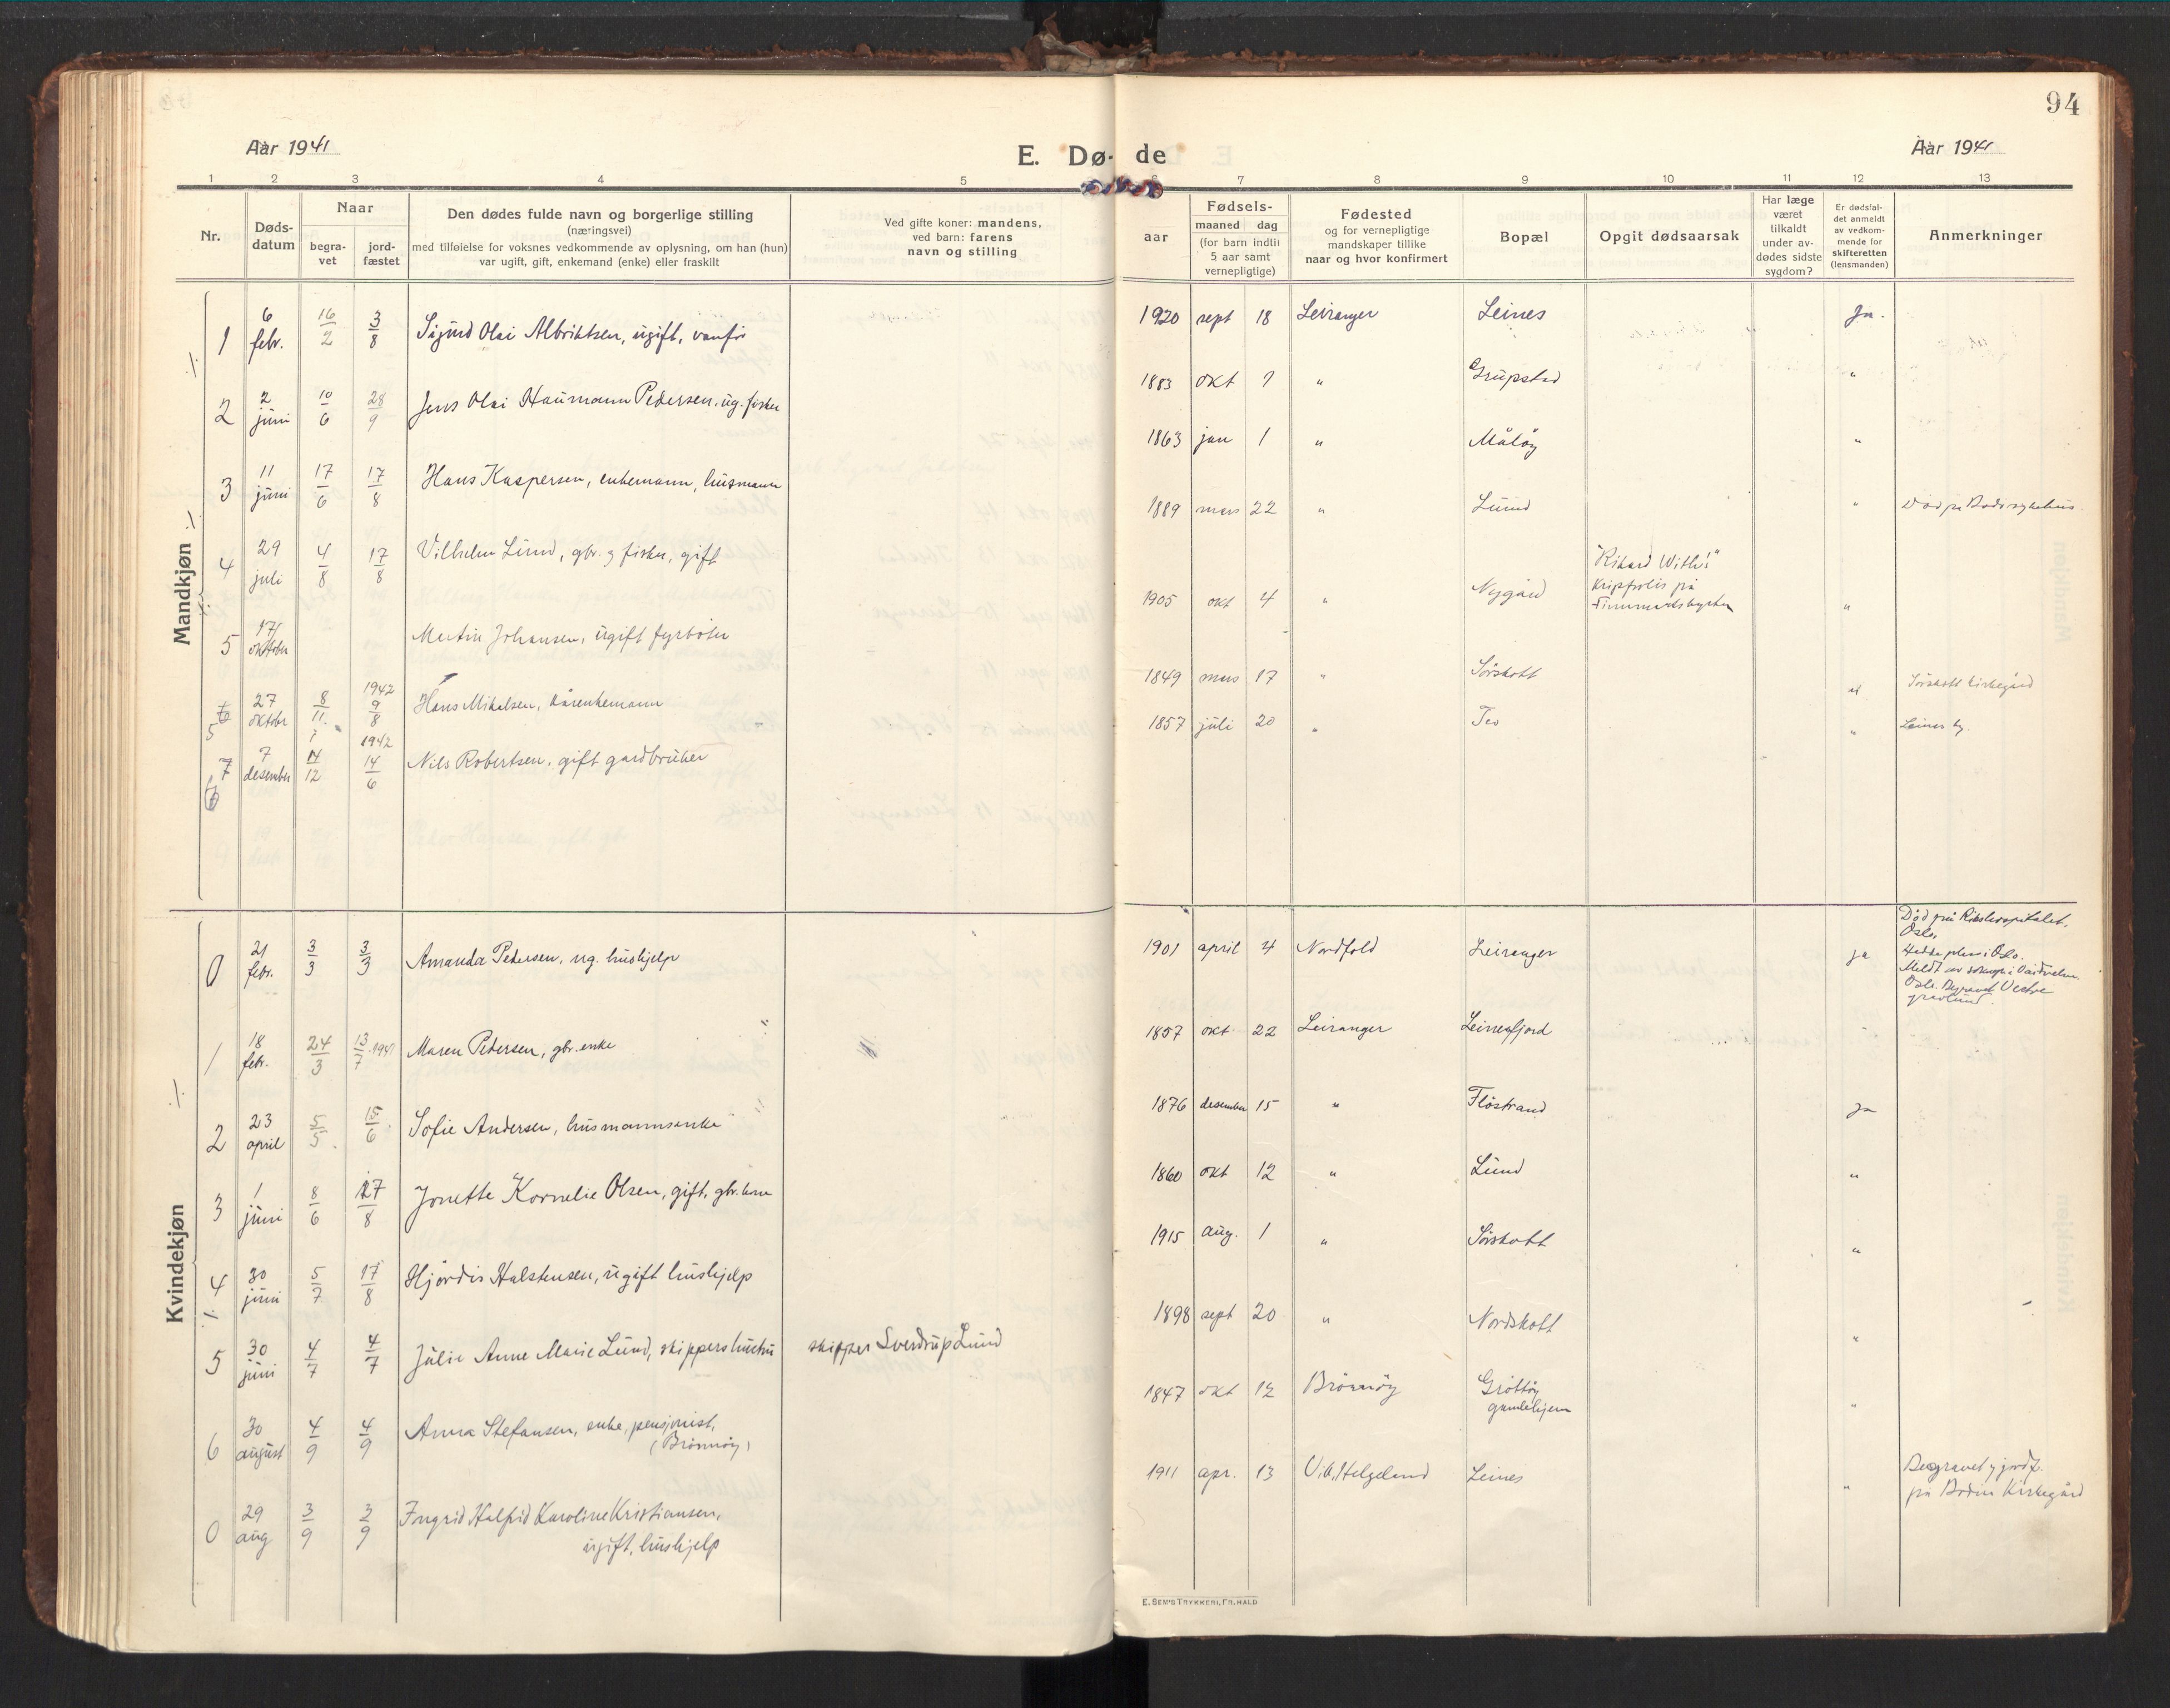 94
Aar 1941
E. Dø-
de
Aar 1941
1 2 3 4 5 6 7 8 9 10 11 12 13
Nr.
Døds-
datum
Naar
begra-
vet
jord-
fæstet
Den dødes fulde navn og borgerlige stilling
(næringsvei)
med tilføielse for voksnes vedkommende av oplysning, om han (hun)
var ugift, gift, enkemand (enke) eller fraskilt
Ved gifte koner: mandens,
ved barn: farens
navn og stilling
Fødsels-
aar
maaned dag
(for barn indtil
5 aar samt
vernepligtige)
Fødested
og for vernepligtige
mandskaper tillike
naar og hvor konfirmert
Bopæl
Opgit dødsaarsak
Har læge
været
tilkaldt
under av-
dødes sidste
sygdom?
Er dødsfal-
det anmeldt
av vedkom-
mende for
skifteretten
(lensmanden)
Anmerkninger
Mandkjøn
1 6 febr. 16/2 3/8 Sigurd Olai Albriktsen, ugift, vanfør 1920 sept 18 Leiranger Leines Ja.
2 2 juni 10/6 28/9 Jens Olai Haumann Pedersen, ug. fisker 1883 okt 7 " Grupstad "
3 11 juni 17/6 17/8 Hans Kaspersen, enkemann, husmann 1863 jan 1 " Måløy "
4 29 juli 4/8 17/8 Vilhelm Lund, gbr. og fisker, gift 1889 mars 22 " Lund " Død på Bodø sykehus.
5 17 oktober Martin Johansen, ugift fyrbøter 1905 okt 4 " Nygård "Rikard With's"
krigsforlis på
Finnmarkskysten "
6 5 27 oktober 8/11 1942 9/8 Hans Mikalsen, kårenkemann 1849 mars 17 " Sørskott " Sørskott kirkegård
7 6 7 desember 14/12 1942 14/6 Nils Robertsen, gift gardbruker 1857 juli 20 " " Leines kg.
Kvindekjøn
0 21 febr. 3/3 3/3 Amanda Pedersen, ug. hushjelp 1901 april 4 Nordfold Leiranger ja Død på Rikshospitalet,
Oslo.
Hadde plass i Oslo.
Oslo. Begravet Vestre
gravlund.
1 18 febr. 24/3 13/7 1941 Maren Pedersen, gbr. enke 1857 okt 22 Leiranger Leinesfjord
2 23 april 5/5 15/6 Sofie Andersen, husmannsenke 1876 desember 15 " Fløstrand ja
3 1 juni 8/6 17/8 Jonette Kornelie Olsen, gift, gbr. kone 1860 okt 12 " Lund "
4 30 juni 5/7 17/8 Hjørdis Halstensen, ugift hushjelp 1915 aug. 1 " Sørskott "
5 30 juni 4/7 4/7 Julie Anne Marie Lund, skippershustru skipper Sverdrup Lund 1898 sept 20 " Nordskott "
6 30 august 4/9 4/9 Anna Stefansen, enke, pensjonist,
(Brønnøy) 1847 okt 12 Brønnøy Grøttøy
gamlehjem "
0 29 aug 3/9 3/9 Ingrid Halfrid Karoline Kristiansen,
ugift, hushjelp 1911 apr. 13 Vik, Helgeland Leines " Begravet og jordf.
på Bodin Kirkegård
E. SEM'S TRYKKERI, FR.HALD